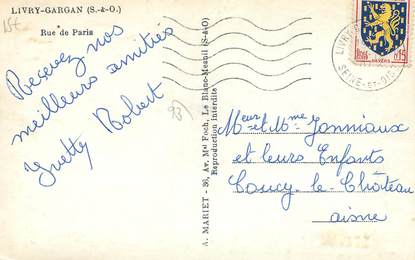 LIVRY-GARGAN (S.-&-O.)
Rue de Paris
15€
Recevez nos
meilleurs amitiés
Yvette Robert
93
A. MARIET - 36, Av. Mal Foch, Le Blanc-Mesnil (S.-&-O.)
Reproduction interdite
LIVRY-G
SEINE-ET-OISE
0,15
NEVERS
Meur et Mme Janniaux
et leurs Enfants
Coucy-le-Château
aisne